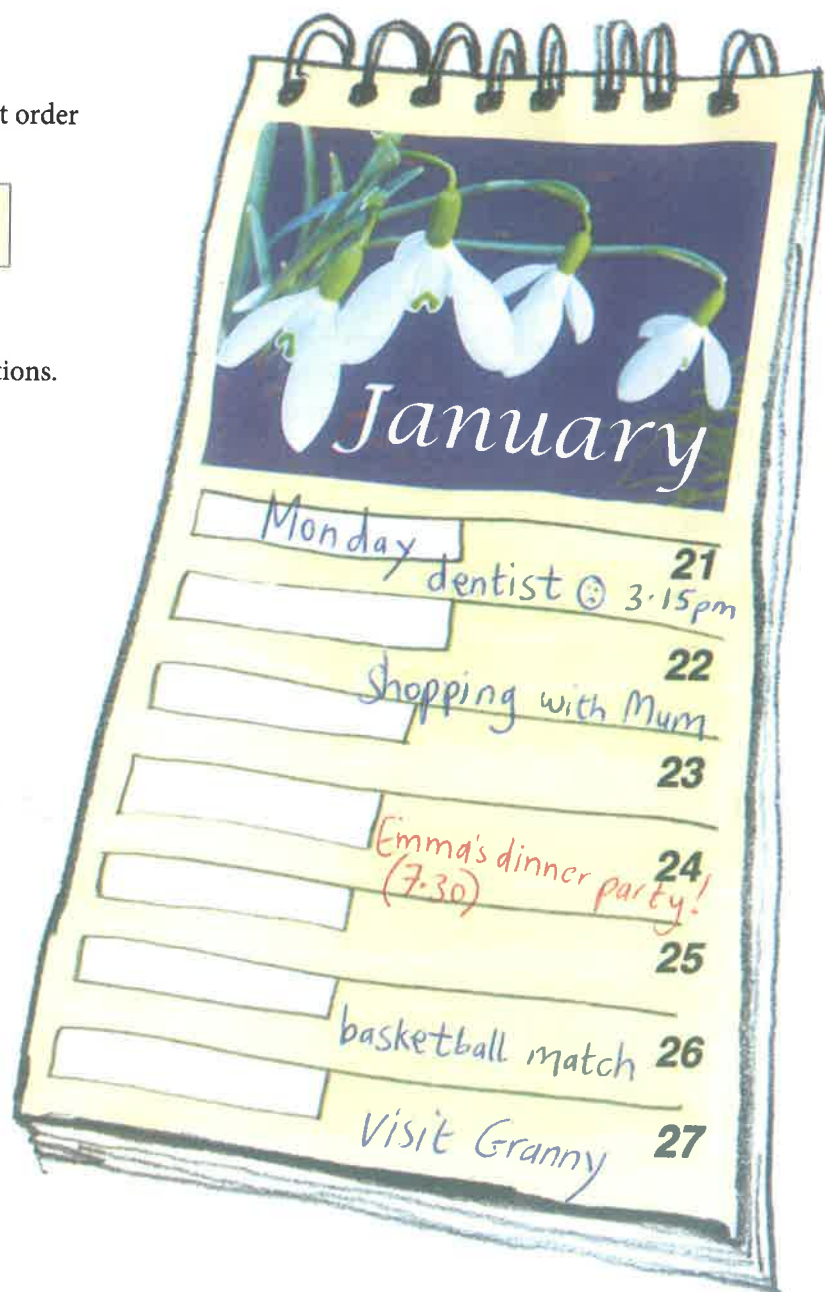 t order
tions.
January
Monday
21
dentist 3.15pm
22
Shopping with Mum
23
24
Emma's dinner party!
(7.30)
25
26
basketball match
27
Visit Granny